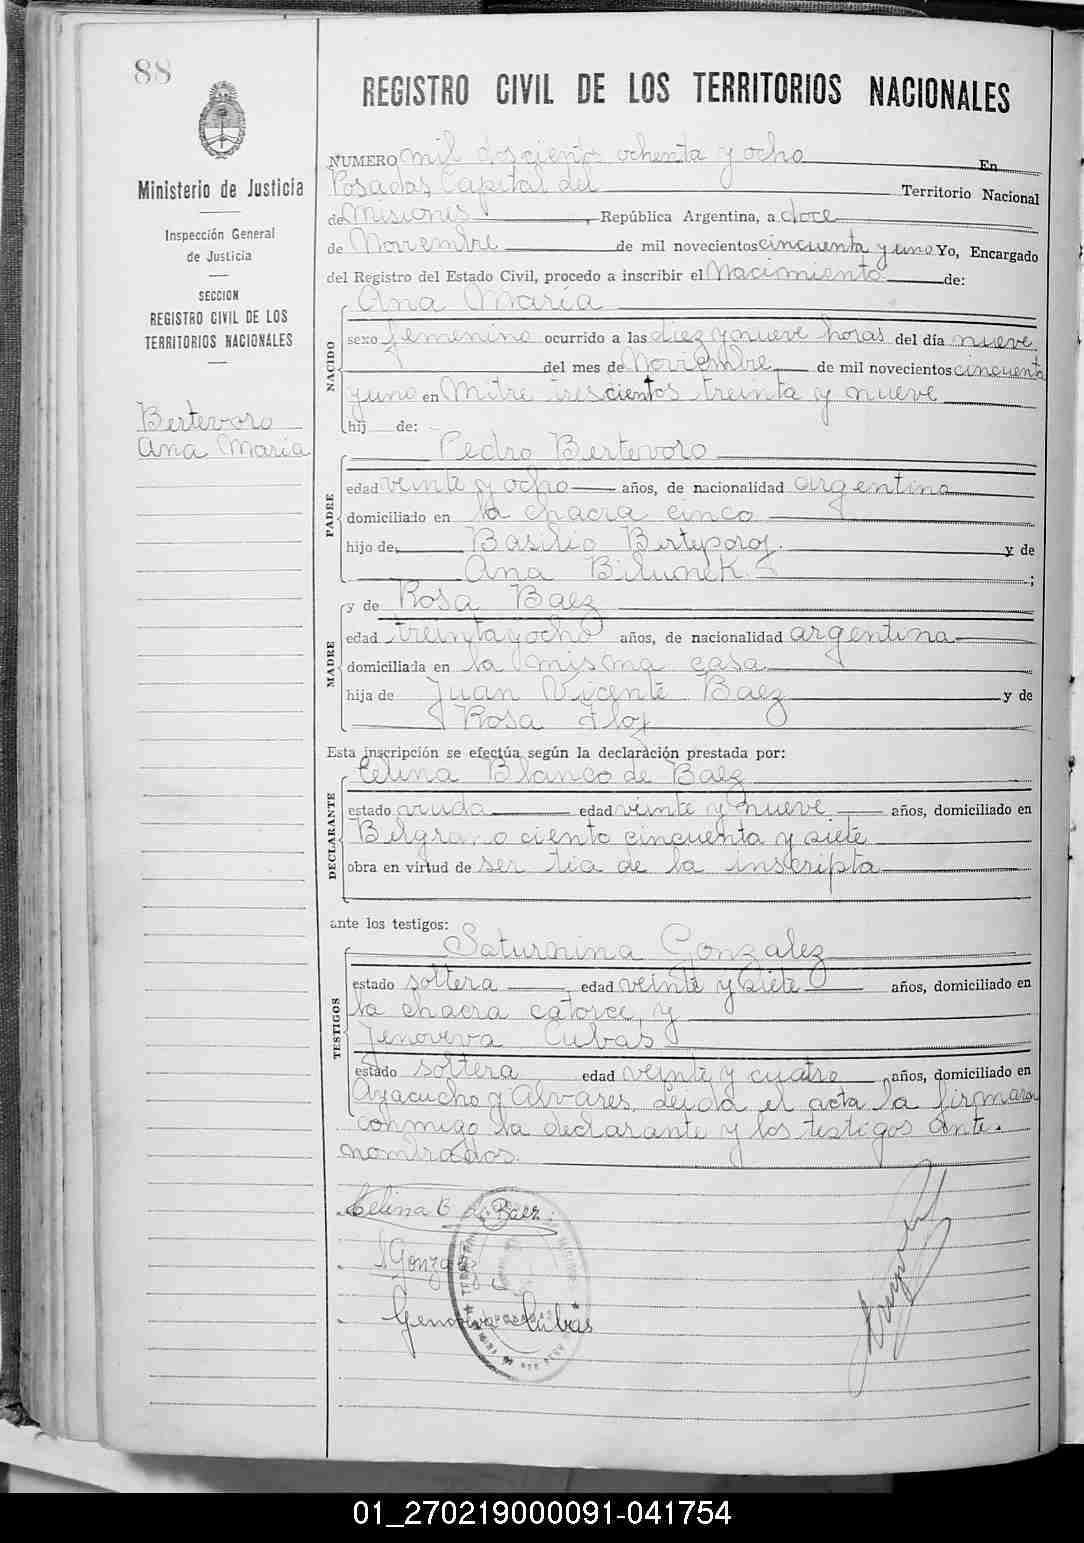 88
REGISTRO CIVIL DE LOS TERRITORIOS NACIONALES
Ministerio de Justicia
Inspección General
de Justicia
SECCION
REGISTRO CIVIL DE LOS
TERRITORIOS NACIONALES
Bertevoro
Ana María
NUMERO mil doscientos ochenta y ocho En
Posadas, Capital del Territorio Nacional
de Misiones, República Argentina, a doce
de Noviembre de mil novecientos cincuenta y uno Yo, Encargado
del Registro del Estado Civil, procedo a inscribir el Nacimiento de:
NACIDO
Ana María
sexo femenino ocurrido a las diez y nueve horas del día nueve
del mes de Noviembre de mil novecientos cincuenta
y uno en Mitre trescientos treinta y nueve
hij de:
PADRE
Pedro Bertevoro
edad veinte y ocho años, de nacionalidad argentino
domiciliado en la chacra cinco
hijo de, Basilio y de
Ana ;
MADRE
y de Rosa Baez
edad treinta y ocho años, de nacionalidad argentina
domiciliada en la misma casa
hija de Juan Vicente Baez y de
Rosa
Esta inscripción se efectúa según la declaración prestada por:
DECLARANTE
Celina Blanco de Baez
estado edad veinte y nueve años, domiciliado en
Belgrano ciento cincuenta y siete
obra en virtud de ser tía de la inscripta
ante los testigos:
TESTIGOS
Saturnina Gonzalez
estado soltera edad veinte y siete años, domiciliado en
la chacra catorce, y
Jenoveva Cubas
estado soltera edad veinte y cuatro años, domiciliado en
Ayacucho y Alvares. Leida el acta la firmaron
conmigo la declarante y los testigos ante.
nombrados.
Celina B. de Baez
Genoveva Cubas
01_270219000091-041754